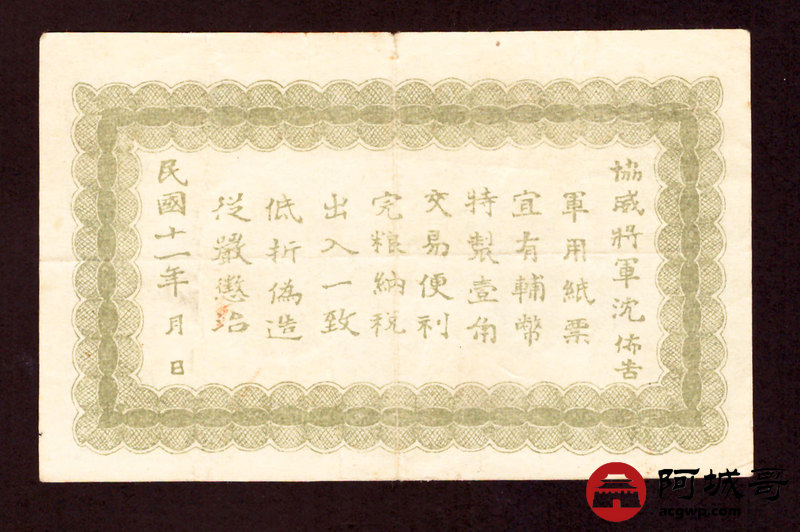 協威將軍沈佈告
軍用紙票
宜有輔幣
特製壹角
交易便利
完粮納稅
出入一致
低折偽造
從嚴懲治
民國十一年 月 日
阿城哥
acgwp.com